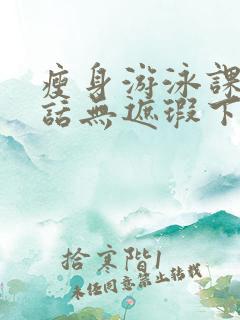 瘦身游泳課
話無遮瑕下
拾寒階1
未任同意禁止转载